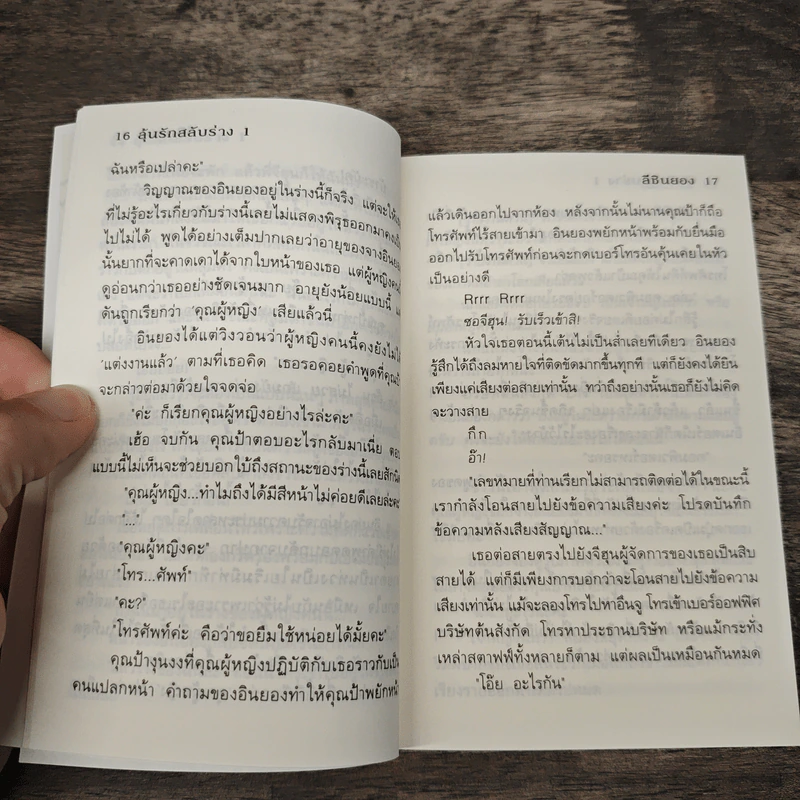 16 ลุ้นรักสลับร่าง 1
ฉันหรือเปล่าคะ"
วิญญาณของอินยองอยู่ในร่างนี้ก็จริง แต่จะให้
ที่ไม่รู้อะไรเกี่ยวกับร่างนี้เลยไม่แสดงพิรุธออกมาคง
ไปไม่ได้ พูดได้อย่างเต็มปากเลยว่าอายุของจางอินยอง
นั้นยากที่จะคาดเดาได้จากใบหน้าของเธอ แต่ผู้หญิง
ดูอ่อนกว่าเธออย่างชัดเจนมาก อายุยังน้อยแบบนี้
ดันถูกเรียกว่า 'คุณผู้หญิง' เสียแล้วนี่
อินยองได้แต่วิงวอนว่าผู้หญิงคนนี้คงยังไม่
'แต่งงานแล้ว' ตามที่เธอคิด เธอรอคอยคำพูดที่คุณ
จะกล่าวต่อมาด้วยใจจดจ่อ
"ค่ะ ก็เรียกคุณผู้หญิงอย่างไรล่ะคะ"
เฮ้อ จบกัน คุณป้าตอบอะไรกลับมาเนี่ย ตอบ
แบบนี้ไม่เห็นจะช่วยบอกใบ้ถึงสถานะของร่างนี้เลยสักนิด
"คุณผู้หญิง...ทำไมถึงได้มีสีหน้าไม่ค่อยดีเลยล่ะคะ
"..."
"คุณผู้หญิงคะ"
"โทร...ศัพท์"
"คะ?"
"โทรศัพท์ค่ะ คือว่าขอยืมใช้หน่อยได้มั้ยคะ"
คุณป้างุนงงที่คุณผู้หญิงปฏิบัติกับเธอราวกับเป็น
คนแปลกหน้า คำถามของอินยองทำให้คุณป้าพยักหน้า
ลีชินยอง 17
แล้วเดินออกไปจากห้อง หลังจากนั้นไม่นานคุณป้าก็ถือ
โทรศัพท์ไร้สายเข้ามา อินยองพยักหน้าพร้อมกับยื่นมือ
ออกไปรับโทรศัพท์ก่อนจะกดเบอร์โทรอันคุ้นเคยในหัว
เป็นอย่างดี
Rrrr Rrrr
ซอจีฮุน! รับเร็วเข้าสิ!
หัวใจเธอตอนนี้เต้นไม่เป็นส่ำเลยทีเดียว อินยอง
รู้สึกได้ถึงลมหายใจที่ติดขัดมากขึ้นทุกที แต่ก็ยังคงได้ยิน
เพียงแค่เสียงต่อสายเท่านั้น ทว่าถึงอย่างนั้นเธอก็ยังไม่คิด
จะวางสาย
กึก
อ๊า!
"เลขหมายที่ท่านเรียกไม่สามารถติดต่อได้ในขณะนี้
เรากำลังโอนสายไปยังข้อความเสียงค่ะ โปรดบันทึก
ข้อความหลังเสียงสัญญาณ..."
เธอต่อสายตรงไปยังจีฮุนผู้จัดการของเธอเป็นสิบ
สายได้ แต่ก็มีเพียงการบอกว่าจะโอนสายไปยังข้อความ
เสียงเท่านั้น แม้จะลองโทรไปหาอึนจู โทรเข้าเบอร์ออฟฟิศ
บริษัทต้นสังกัด โทรหาประธานบริษัท หรือแม้กระทั่ง
เหล่าสตาฟฟ์ทั้งหลายก็ตาม แต่ผลเป็นเหมือนกันหมด
"โอ๊ย อะไรกัน"